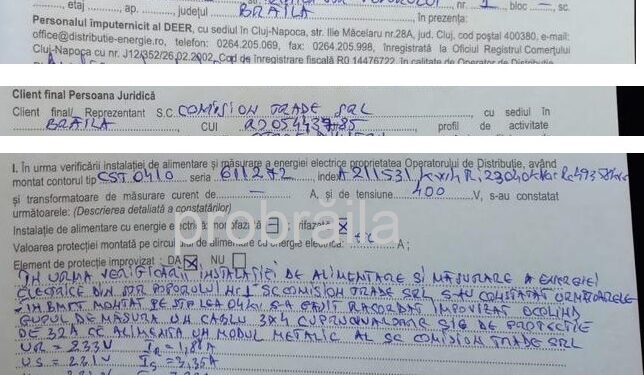 , etaj , ap. , județul BRĂILA nr. 1 , bloc — , sc.
în prezența:
Personalului împuternicit al DEER, cu sediul în Cluj-Napoca, str. Ilie Măcelaru nr.28A, jud. Cluj, cod poștal 400380, e-mail:
office@distributie-energie.ro, telefon: 0264.205.069, fax: 0264.205.998, înregistrată la Oficiul Registrul Comerțului
Cluj-Napoca cu nr. J12/352/26.02.2002, Cod de înregistrare fiscală RO 14476722, în calitate de Operator de Distribuție
Client final Persoana Juridică
Client final/ Reprezentant S.C. COMISION TRADE SRL , cu sediul în
BRĂILA , CUI , profil de activitate
I. În urma verificării instalației de alimentare și măsurare a energiei electrice proprietatea Operatorului de Distribuție, având
montat contorul tip CST 0410 seria 611272 , index
și transformatoare de măsurare curent de — A, și de tensiune 400 V, s-au constatat
următoarele: (Descrierea detaliată a constatărilor)
probrăila
Instalație de alimentare cu energie electrică: monofazată trifazată x
Valoarea protecției montată pe circuitul de alimentare cu energie electrică: A ;
Element de protecție improvizat : DA x , NU
IN URMA VERIFICĂRII INSTALAȚIEI DE ALIMENTARE ȘI MĂSURARE A ENERGIEI
ELECTRICE DIN STR POPORULUI Nr 1 SC COMISION TRADE SRL S-AU CONSTATAT URMATOARELE
- IN BMPT MONTAT PE STP LEA 04kV S-A GĂSIT RACORDAT IMPOVIZAT OCOLIND
GUPUL DE MĂSURA UN CABLU 3X4 CUPRU SIG DE PROTECTIE
DE 32A CE ALIMENTA UN MODUL METALIC AL SC COMISION TRADE SRL
UR = 233V IR = 1,88A
US = 231V IS = 3,35A